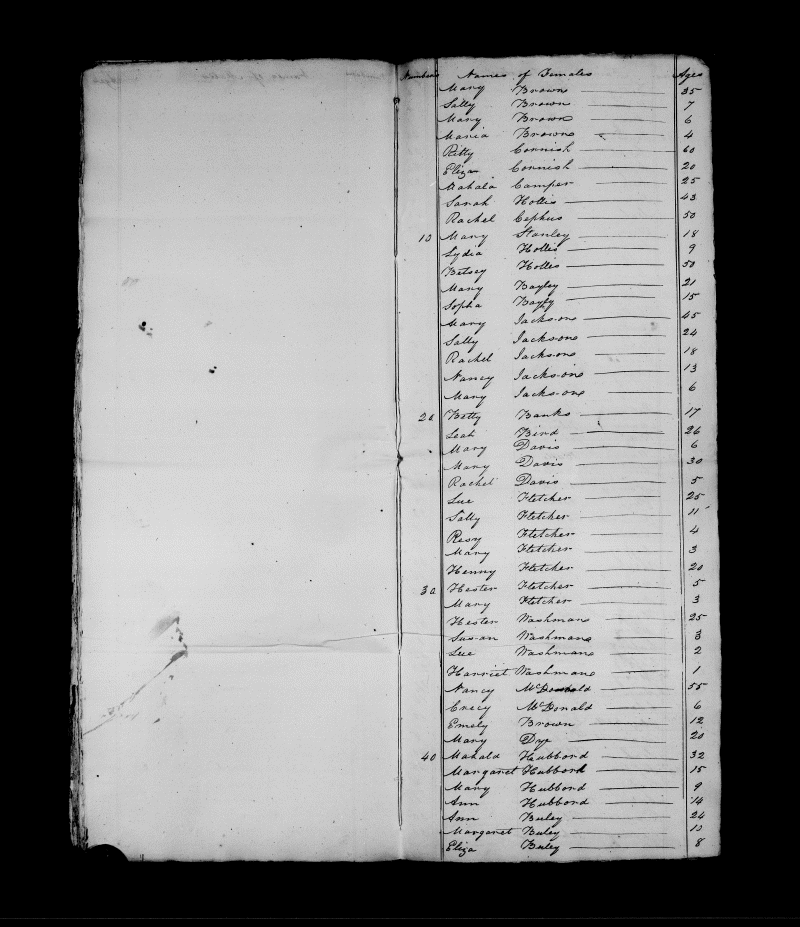 Numbers Names of Females Ages
Mary Browne 35
Sally Brown 7
Mary Brown 6
Maria Browne 4
Ritty Cornish 60
Eliza Cornish 20
Mahala Camper 25
Sarah Hollis 43
Rachel Cephus 50
10 Mary Stanley 18
Lydia Hollis 9
Betsey Hollis 50
Mary Bayley 21
Sopha 15
Mary Jacksone 45
Sally Jacksone 24
Rachel Jacksone 18
Nancy Jacksone 13
Mary Jacksone 6
20 Betty Banks 17
Leah Bird 26
Mary Davis 6
Mary Davis 30
Rachel Davis 5
Sue Fletcher 25
Sally Fletcher 11
Rosy Fletcher 4
Mary Fletcher 3
Henny Fletcher 20
30 Hester Fletcher 5
Mary Fletcher 3
Hester Washmane 25
Susan Washmane 3
Sue Washmane 2
Harriet Washmane 1
Nancy McDonald 55
Crecy McDonald 6
Emely Brown 12
Mary Dye 20
40 Mahala Hubbord 32
Margaret Hubbord 15
Mary Hubbord 9
Ann Hubbord 14
Ann Buley 24
Margaret Buley 10
Eliza Buley 8